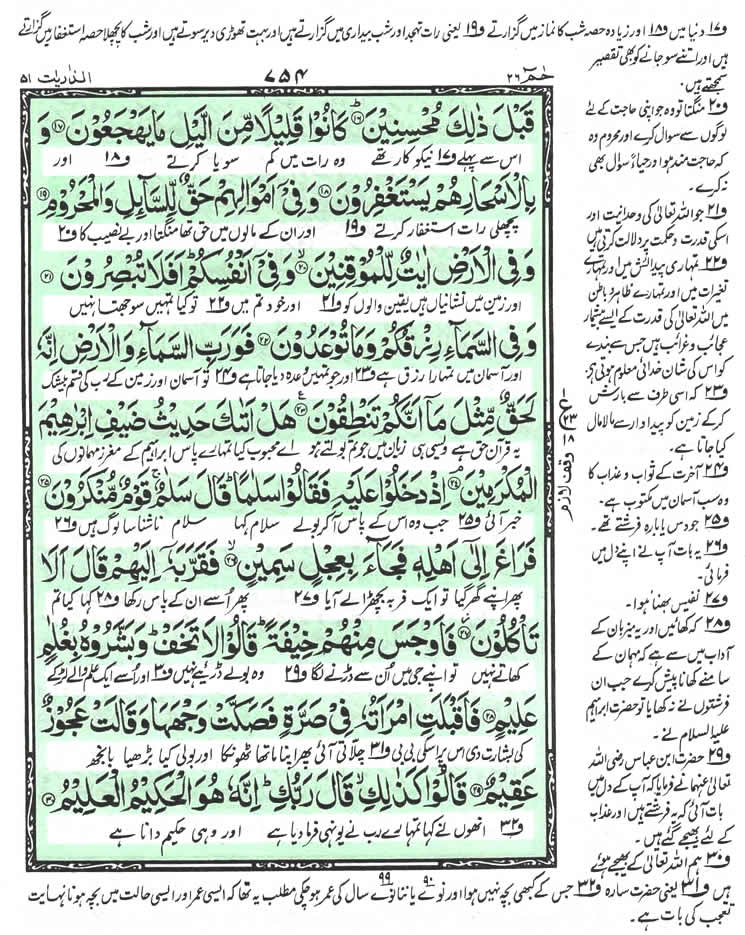 و۱۷ دنیا میں و۱۸ اور زیادہ حصہ شب کا نماز میں گزارتے و۱۹ یعنی رات تہجد اور شب بیداری میں گزارتے ہیں اور بہت تھوڑی دیر سوتے ہیں اور شب کا پچھلا حصہ استغفار میں گزارتے
ہیں اور اتنے سو جانے کو بھی تقصیر
سمجھتے ہیں۔
حٰمٓ ۲۶
۷۵۴
الذّٰریٰت ۵۱
قَبْلَ ذٰلِكَ مُحْسِنِیْنَ ۝۱۶ كَانُوْا قَلِیْلًا مِّنَ الَّیْلِ مَا یَهْجَعُوْنَ ۝۱۷ وَ
اس سے پہلے و۱۷ نیکوکار تھے وہ رات میں کم سویا کرتے و۱۸ اور
بِالْاَسْحَارِ هُمْ یَسْتَغْفِرُوْنَ ۝۱۸ وَ فِیْۤ اَمْوَالِهِمْ حَقٌّ لِّلسَّآىِٕلِ وَ الْمَحْرُوْمِ ۝۱۹
پچھلی رات استغفار کرتے و۱۹ اور ان کے مالوں میں حق تھا منگتا اور بے نصیب کا و۲۰
وَ فِی الْاَرْضِ اٰیٰتٌ لِّلْمُوْقِنِیْنَ ۝۲۰ وَ فِیْۤ اَنْفُسِكُمْ اَفَلَا تُبْصِرُوْنَ ۝۲۱
اور زمین میں نشانیاں ہیں یقین والوں کو و۲۱ اور خود تم میں و۲۲ تو کیا تمہیں سوجھتا نہیں
وَ فِی السَّمَآءِ رِزْقُكُمْ وَ مَا تُوْعَدُوْنَ ۝۲۲ فَوَرَبِّ السَّمَآءِ وَ الْاَرْضِ اِنَّهٗ
اور آسمان میں تمہارا رزق ہے و۲۳ اور جو تمہیں وعدہ دیا جاتا ہے و۲۴ تو آسمان اور زمین کے رب کی قسم بیشک
لَحَقٌّ مِّثْلَ مَاۤ اَنَّكُمْ تَنْطِقُوْنَ ۝۲۳ هَلْ اَتٰىكَ حَدِیْثُ ضَیْفِ اِبْرٰهِیْمَ
یہ قرآن حق ہے ویسی ہی زبان میں جو تم بولتے ہو اے محبوب کیا تمہارے پاس ابراہیم کے معزز مہمانوں کی
الْمُكْرَمِیْنَ ۝۲۴ اِذْ دَخَلُوْا عَلَیْهِ فَقَالُوْا سَلٰمًا قَالَ سَلٰمٌ قَوْمٌ مُّنْكَرُوْنَ ۝۲۵
خبر آئی و۲۵ جب وہ اس کے پاس آکر بولے سلام کہا سلام ناشناسا لوگ ہیں و۲۶
فَرَاغَ اِلٰۤى اَهْلِهٖ فَجَآءَ بِعِجْلٍ سَمِیْنٍ ۝۲۶ فَقَرَّبَهٗۤ اِلَیْهِمْ قَالَ اَلَا
پھر اپنے گھر گیا تو ایک فربہ بچھڑا لے آیا و۲۷ پھر اُسے ان کے پاس رکھا و۲۸ کہا کیا تم
تَاْكُلُوْنَ ۝۲۷ فَاَوْجَسَ مِنْهُمْ خِیْفَةً قَالُوْا لَا تَخَفْ وَ بَشَّرُوْهُ بِغُلٰمٍ
کھاتے نہیں تو اپنے جی میں اُن سے ڈرنے لگا و۲۹ وہ بولے ڈریئے نہیں و۳۰ اور اُسے ایک علم والے لڑکے
عَلِیْمٍ ۝۲۸ فَاَقْبَلَتِ امْرَاَتُهٗ فِیْ صَرَّةٍ فَصَكَّتْ وَجْهَهَا وَ قَالَتْ عَجُوْزٌ
کی بشارت دی اس پر اسکی بی بی و۳۱ چلّاتی آئی پھر اپنا ماتھا ٹھونکا اور بولی کیا بڑھیا بانجھ
عَقِیْمٌ ۝۲۹ قَالُوْا كَذٰلِكِ قَالَ رَبُّكِ اِنَّهٗ هُوَ الْحَكِیْمُ الْعَلِیْمُ ۝۳۰
و۳۲ انھوں نے کہا تمہارے رب نے یونہی فرما دیا ہے اور وہی حکیم دانا ہے
ع
۲۳
۱۸
وقف لازم
و۲۰ منگتا تو وہ جو اپنی حاجت کے لئے
لوگوں سے سوال کرے اور محروم وہ
کہ حاجت مند ہو اور حیاءً سوال بھی
نہ کرے۔
و۲۱ جو اللہ تعالیٰ کی وحدانیت اور
اسکی قدرت و حکمت پر دلالت کرتی ہیں
و۲۲ تمہاری پیدائش میں اور تمہارے
تغیرات میں اور تمہارے ظاہر و باطن
میں اللہ تعالیٰ کی قدرت کے ایسے بیشمار
عجائب و غرائب ہیں جس سے بندے
کو اس کی شان خدائی معلوم ہوتی ہے۔
و۲۳ کہ اسی طرف سے بارش
کرکے زمین کو پیداوار سے مالا مال
کیا جاتا ہے۔
و۲۴ آخرت کے ثواب و عذاب کا
وہ سب آسمان میں مکتوب ہے۔
و۲۵ جو دس یا بارہ فرشتے تھے۔
و۲۶ یہ بات آپ نے اپنے دل میں
فرمائی۔
و۲۷ نفیس بھنا ہوا۔
و۲۸ کہ کھائیں اور یہ میزبان کے
آداب میں سے ہے کہ مہمان کے
سامنے کھانا پیش کرے جب ان
فرشتوں نے نہ کھایا تو حضرت ابراہیم
علیہ السلام نے۔
و۲۹ حضرت ابن عباس رضی اللہ
تعالیٰ عنہما نے فرمایا کہ آپ کے دل میں
بات آئی کہ یہ فرشتے ہیں اور عذاب
کے لئے بھیجے گئے ہیں۔
و۳۰ ہم اللہ تعالیٰ کے بھیجے ہوئے
ہیں و۳۱ یعنی حضرت سارہ و۳۲ جس کے کبھی بچہ نہیں ہوا اور نوے ۹۰ یا ننانوے ۹۹ سال کی عمر ہو چکی مطلب یہ تھا کہ ایسی عمر اور ایسی حالت میں بچہ ہونا نہایت
تعجب کی بات ہے۔